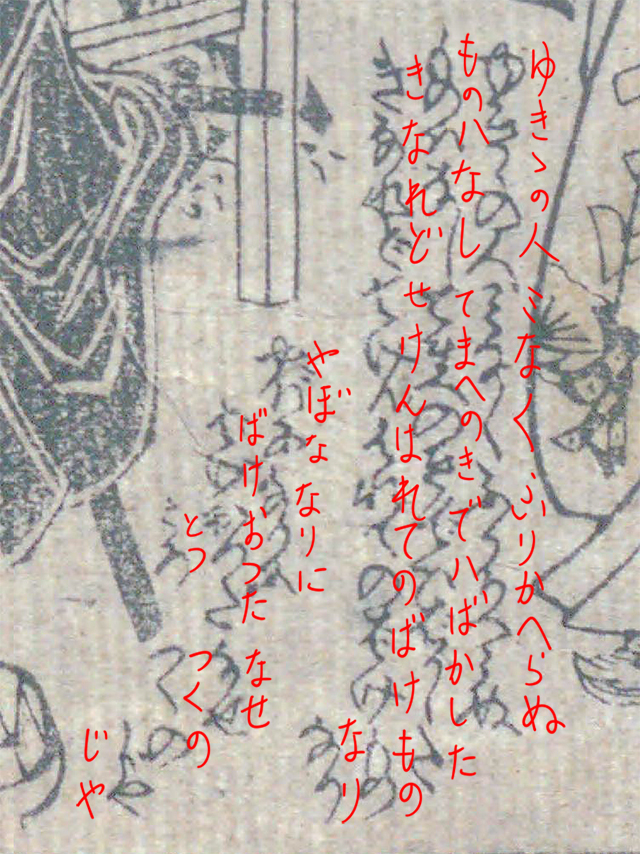 ゆきゝの人みなくふりかへらぬ
ものハなしてまへのきでハばかした
きなれどせけんはれてのばけもの
なり
やぼななりに
ばけおつたなせ
とつ
つくの
じや